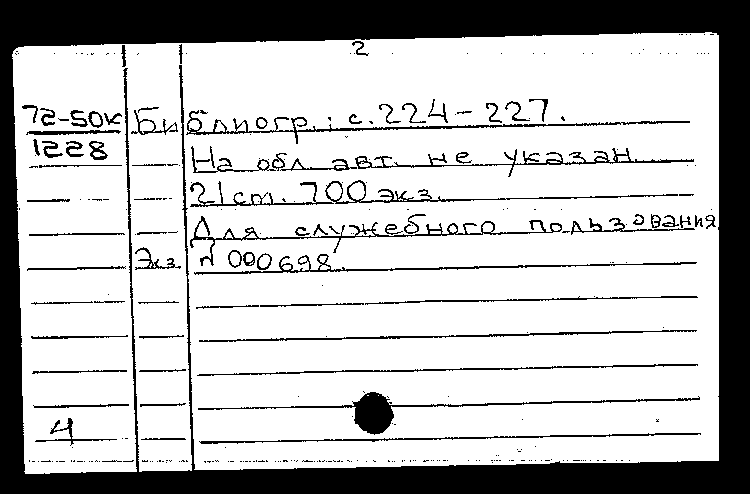 2
72-50к Библиогр.: с. 224-227.
1228 На обл. авт. не указан.
21 cm. 700 экз.
Для служебного пользования
Экз. N 000698.
4